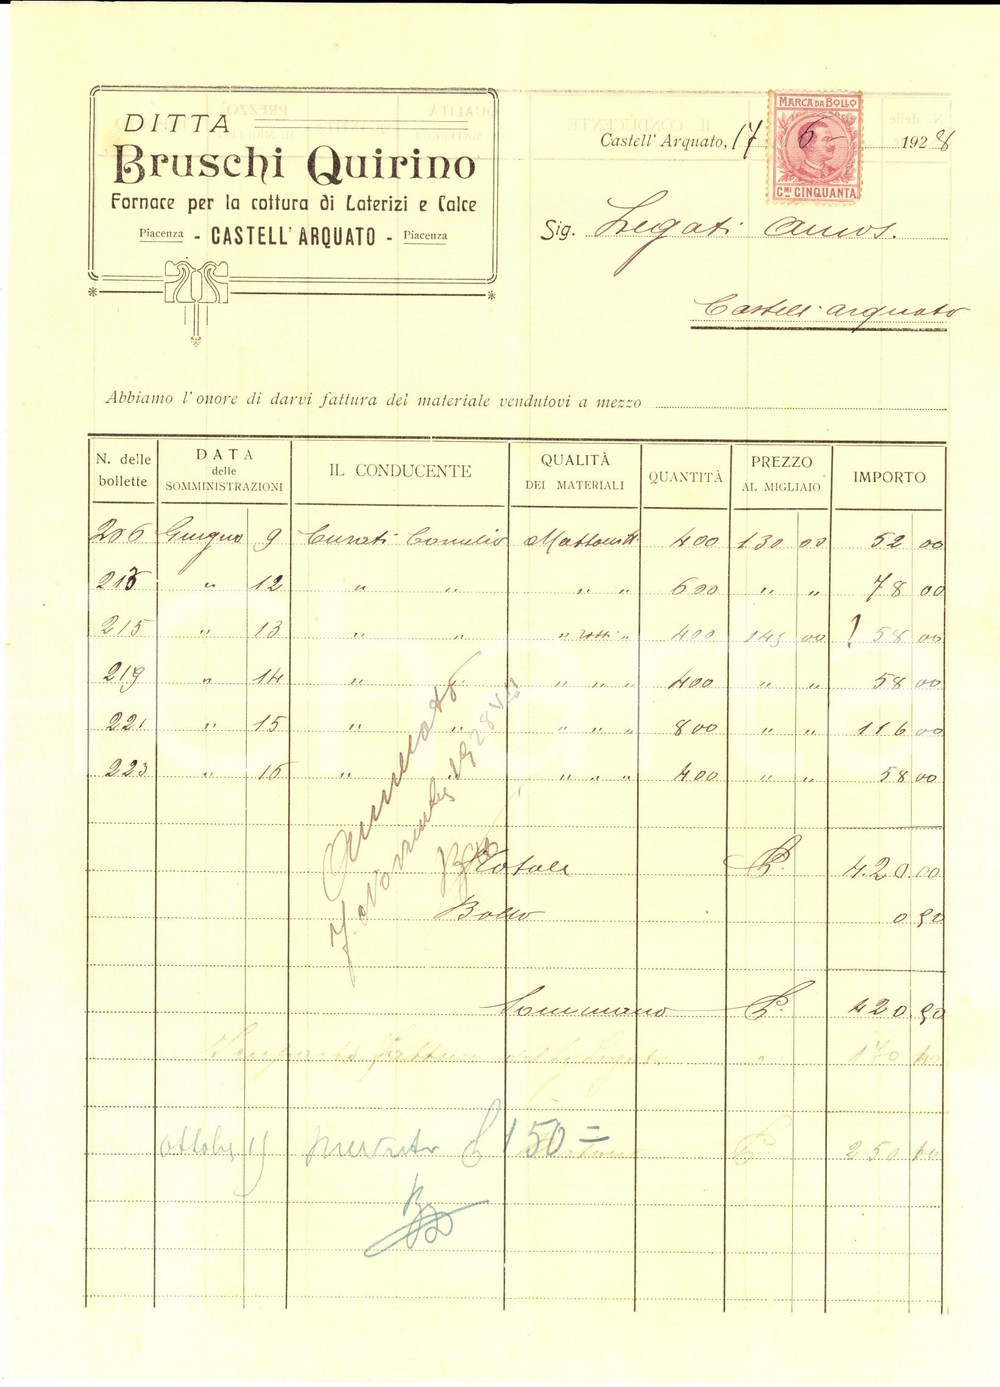 DITTA
Bruschi Quirino
Fornace per la cottura di Laterizi e Calce
Piacenza - CASTELL'ARQUATO - Piacenza
MARCA DA BOLLO
CMI CINQUANTA
Castell' Arquato, 17 6 - 1928
Sig. Legati Amos.
Castell'arquato
Abbiamo l'onore di darvi fattura del materiale vendutovi a mezzo
N. delle bollette DATA delle SOMMINISTRAZIONI IL CONDUCENTE QUALITÀ DEI MATERIALI QUANTITÀ PREZZO AL MIGLIAIO IMPORTO
206 Giugno 9 Curati Camillo Mattoni 400 130 00 52 00
213 " 12 " " " " 600 " " 78 00
215 " 13 " " " rossi " 400 145 00 ! 58 00
219 " 14 " " " " " 400 " " 58 00
221 " 15 " " " " " 800 " " 116 00
223 " 16 " " " " " 400 " " 58 00
Annullato
7 Novembre 1928 VII
Totale £. 420.00
Bollo 0 50
Sommano £. 420 50
fattura 170
Ottobre 19 £ 150 =
£. 250